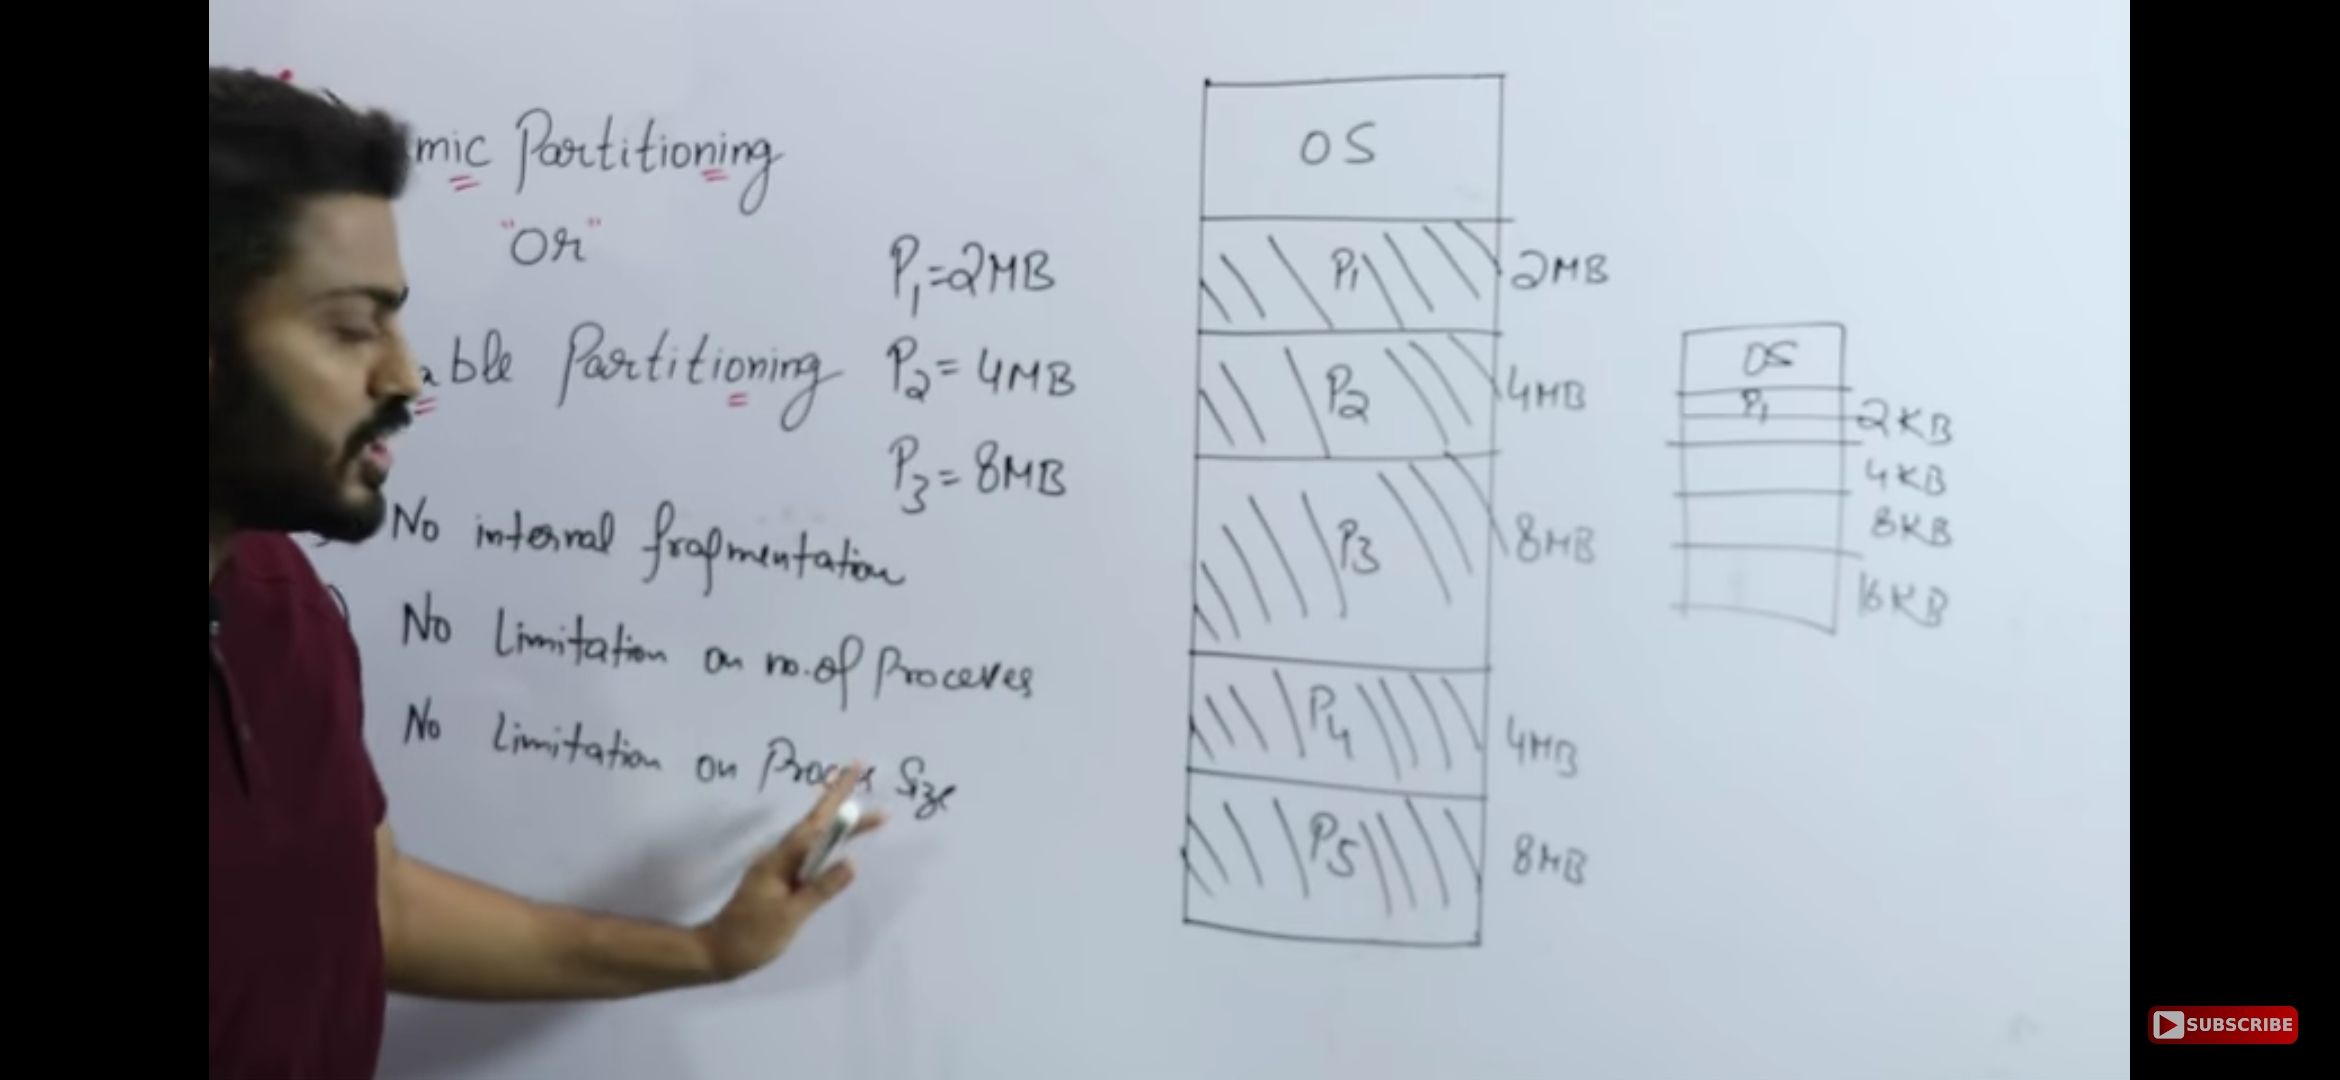 mic Partitioning
"Or"
able Partitioning
No internal fragmentation
No Limitation on no. of Processes
No Limitation on Process Size
P1=2MB
P2= 4MB
P3= 8MB
OS
P1 2MB
P2 4MB
P3 8MB
P4 4MB
P5 8MB
OS
P1 2KB
4KB
8KB
16KB
SUBSCRIBE